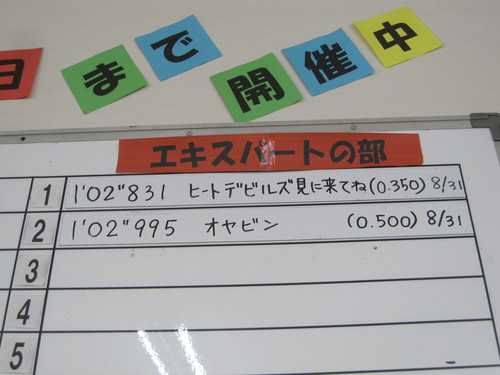 日まで開催中
エキスパートの部
1 1'02"831 ヒートデビルズ見に来てね(0.350) 8/31
2 1'02"995 オヤビン (0.500) 8/31
3
4
5